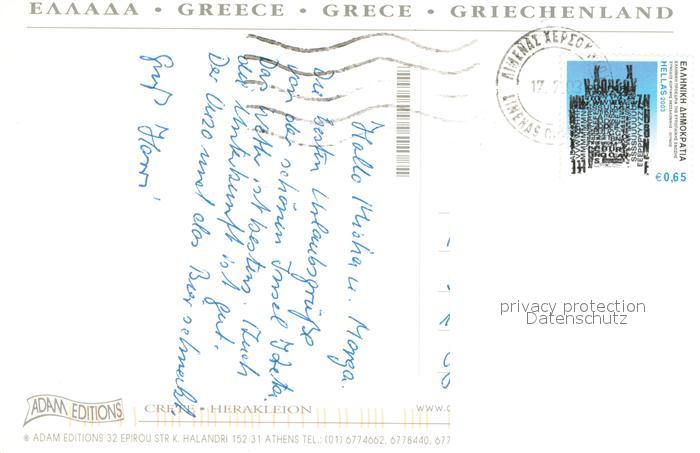 ΕΛΛΑΔΑ • GREECE • GRECE • GRIECHENLAND
ΛΙΜΕΝΑΣ ΧΕΡΣΟΝ
LIMENAS
ΕΛΛΗΝΙΚΗ ΔΗΜΟΚΡΑΤΙΑ
HELLAS 2003
€0,65
Hallo Misha u. Marga.
Die besten Urlaubsgrüße
von der schönen Insel Kreta.
Das Wetter ist bestens. Auch
die Unterkunft ist gut.
Der Ouzo und das Bier schmeckt.
Gruß Harri
privacy protection
Datenschutz
ADAM EDITIONS
CRETE • HERAKLEION
WWW.
® ADAM EDITIONS 32 EPIROU STR K. HALANDRI 152 31 ATHENS TEL.: (01) 6774662, 6778440, 677